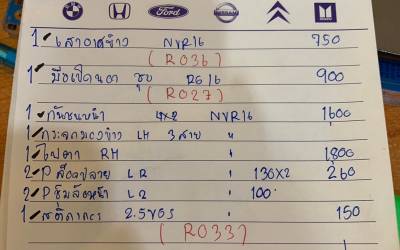 Ford NISSAN ISUZU
1 เสาอากาศข้าง NVR16 750
(R036)
1 มือเปิดนอก ชุบ RG16 900
(R027)
1 กันชนหน้า 4x2 NVR16 1600
1 กระจกมองข้าง LH 3สาย "
1 ไฟตา RH " 1800
2 P ล้อคู่ปลาย LR " 130x2 260
2 P ซุ้มล้อหน้า LR " 100
1 2.5ของ 150
(R033)